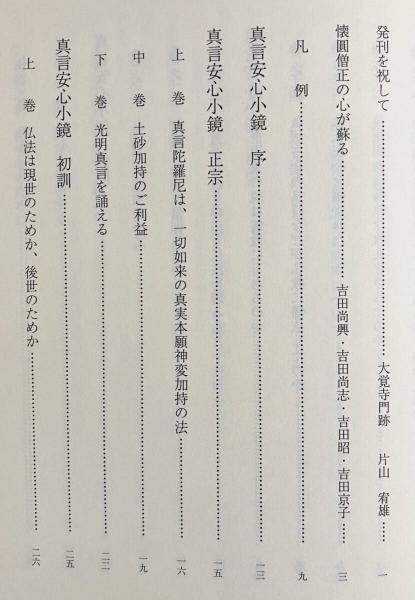 発刊を祝して……………………大覚寺門跡　片山　宥雄……一
懐圓僧正の心が蘇る……………吉田尚興・吉田尚志・吉田昭・吉田京子……三
凡　例……………………九
真言安心小鏡　序……………………一三
真言安心小鏡　正宗……………………一五
上　巻　真言陀羅尼は、一切如来の真実本願神変加持の法……………一六
中　巻　土砂加持のご利益……………………一九
下　巻　光明真言を誦える……………………二二
真言安心小鏡　初訓……………………二五
上　巻　仏法は現世のためか、後世のためか……………………二六